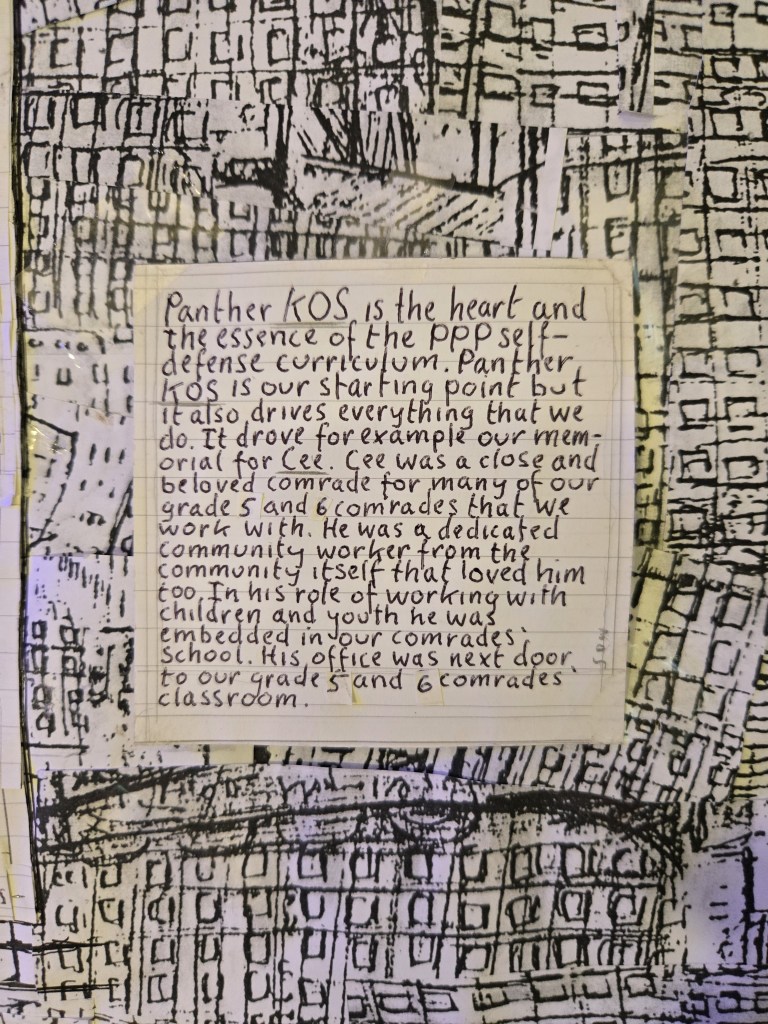 Panther KOS is the heart and
the essence of the PPP self-
defense curriculum. Panther
KOS is our starting point but
it also drives everything that we
do. It drove for example our mem-
orial for Cee. Cee was a close and
beloved comrade for many of our
grade 5 and 6 comrades that we
work with. He was a dedicated
community worker from the
community itself that loved him
too. In his role of working with
children and youth he was
embedded in our comrades'
school. His office was next door
to our grade 5 and 6 comrades'
classroom.